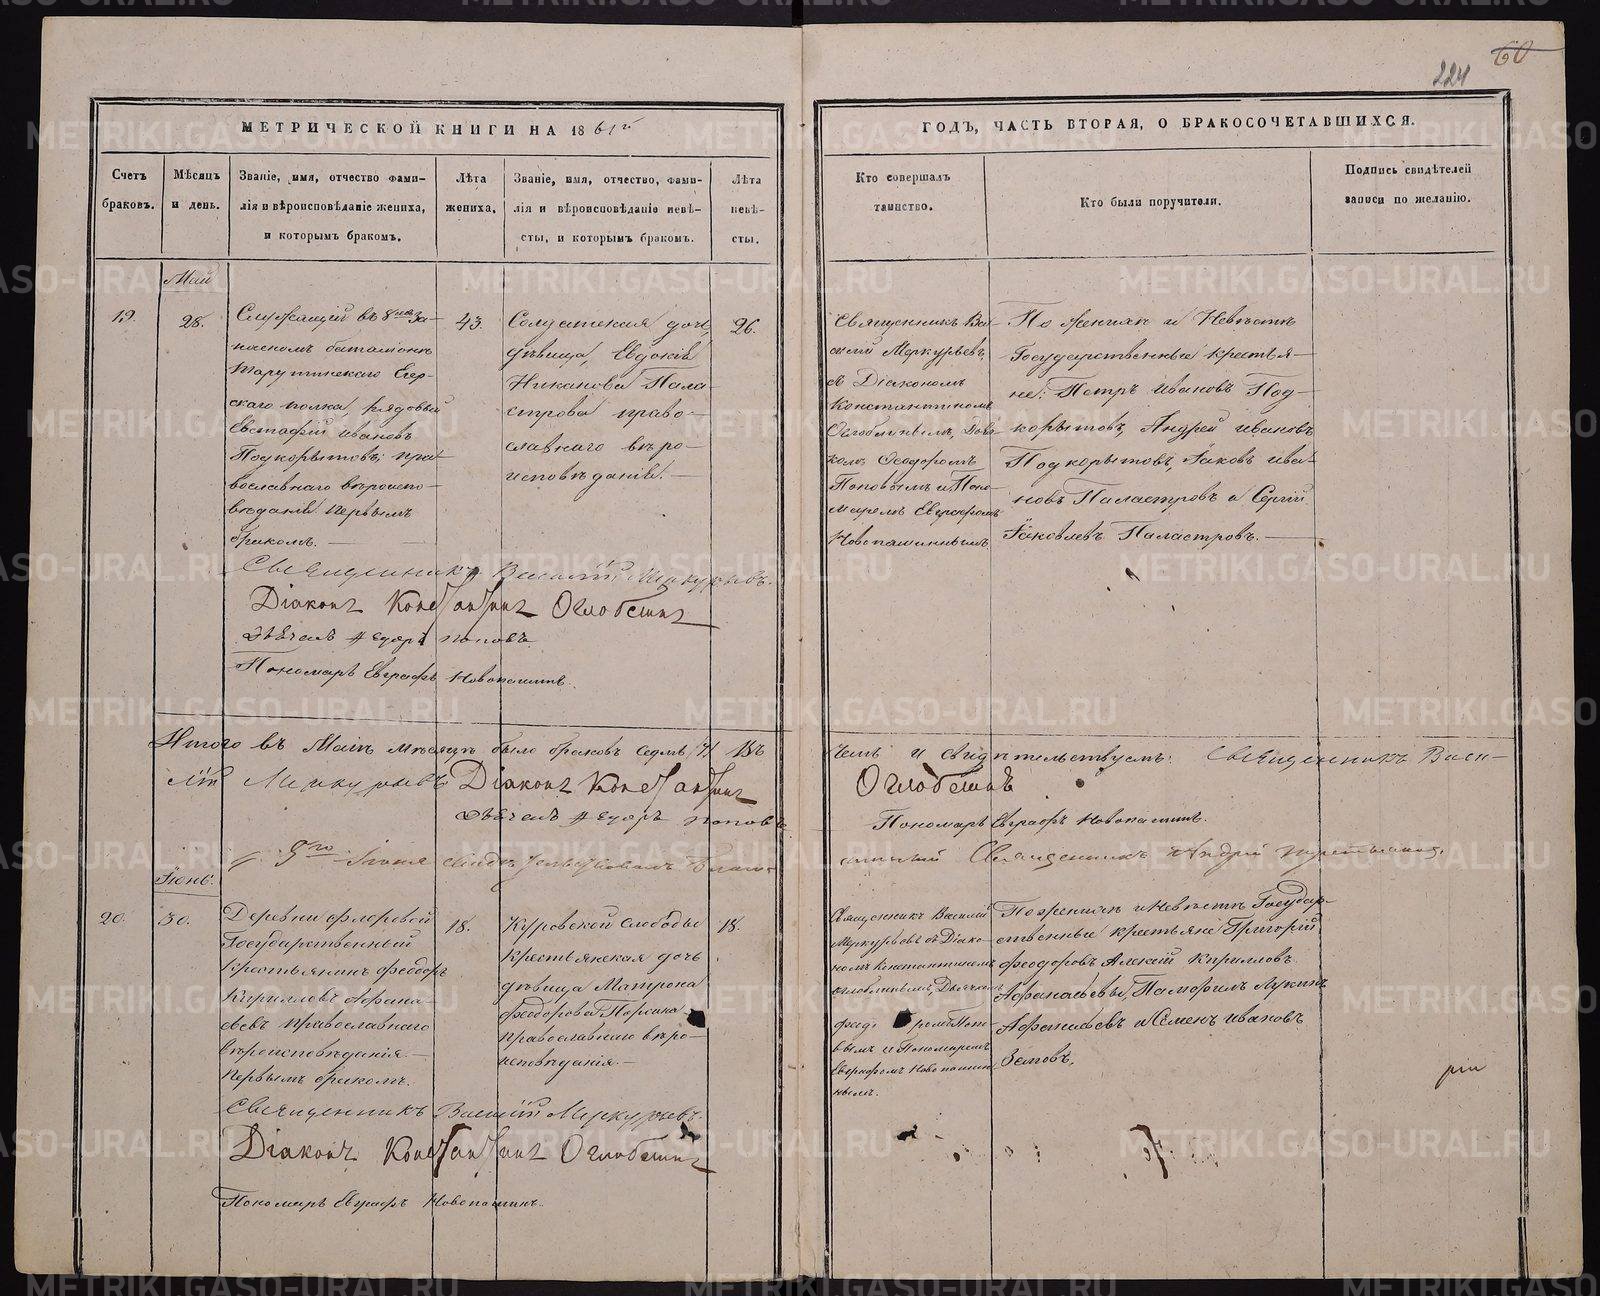 60
224
МЕТРИЧЕСКОЙ КНИГИ НА 1861й
ГОДЪ, ЧАСТЬ ВТОРАЯ, О БРАКОСОЧЕТАВШИХСЯ.
Счетъ
браковъ.
Мѣсяцъ
и день.
Званіе, имя, отчество фами-
лія и вѣроисповѣданіе жениха,
и которымъ бракомъ.
Лѣта
жениха.
Званіе, имя, отчество, фами-
лія и вѣроисповѣданіе невѣ-
сты, и которымъ бракомъ.
Лѣта
невѣ-
сты.
Кто совершалъ
таинство.
Кто были поручители.
Подпись свидѣтелей
записи по желанію.
Май
19.
28.
Служащій въ 8мъ за-
пасномъ баталіонѣ
Тарутинскаго Егер-
скаго полка, рядовый
Евстафій Ивановъ
Подкорытовъ, пра-
вославнаго вѣроиспо-
вѣданія первымъ
бракомъ.
43.
Солдатская дочь,
дѣвица, Евдокія
Никанова Пала-
строва право-
славнаго вѣро-
исповѣданія.
26.
Священникъ Ва-
силій Меркурьевъ,
съ Діакономъ
Константиномъ
Оглоблинымъ, Дья-
комъ Ѳеодоромъ
Поповымъ и Поно-
маремъ Евграфомъ
Новопашинымъ
По женихѣ и Невѣстѣ
Государственные крестья-
не: Петръ Ивановъ Под-
корытовъ, Андрей Ивановъ
Подкорытовъ, Іаковъ Ива-
новъ Паластровъ и Сергій
Іаковлевъ Паластровъ.
Священникъ Василій Меркурьевъ.
Діаконъ Константинъ Оглоблинъ
Дьячекъ Федоръ Поповъ
Пономарь Евграфъ Новопашинъ.
Итого въ Маѣ мѣсяцѣ было браковъ седмь /7/ Въ
чемъ и свидѣтельствуемъ: Священникъ Васи-
лій Меркурьевъ Діаконъ Константинъ
Оглоблинъ
Дьячекъ Федоръ Поповъ
Пономарь Евграфъ Новопашинъ.
9го Іюня
Священникъ Андрей
Іюнь.
20.
30.
Деревни Флоровой
Государственный
крестьянинъ Феодоръ
Кирилловъ Афана-
сьевъ православнаго
вѣроисповѣданія.
Первымъ бракомъ.
18.
Куровской слободы
крестьянская дочь
дѣвица Матрона
Феодорова
православнаго вѣро-
исповѣданія.
18.
Священникъ Василій
Меркурьевъ съ Діако-
номъ Константиномъ
Оглоблинымъ, Дьячкомъ
Феодоромъ Попо-
вымъ и Пономаремъ
Евграфомъ Новопаши-
нымъ.
По женихѣ и Невѣстѣ Государ-
ственные крестьяне Григорій
Феодоровъ Алексій Кирилловъ
Афанасьевы, Памфилъ Лукинъ
Афанасьевъ и Семенъ Ивановъ
Зотовъ.
Священникъ Василій Меркурьевъ.
Діаконъ Константинъ Оглоблинъ
Пономарь Евграфъ Новопашинъ.
METRIKI.GASO-URAL.RU